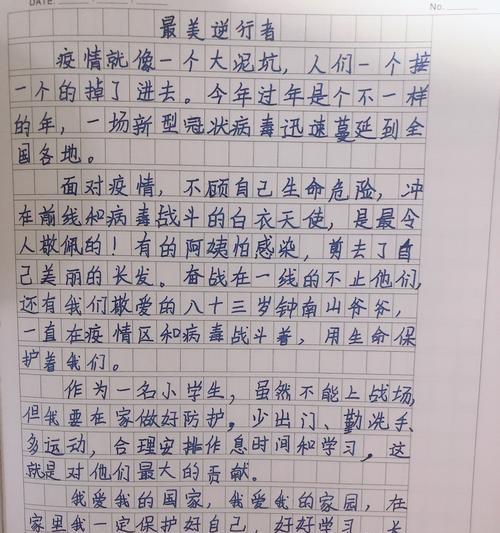 DATE:
No.
最美逆行者
疫情就像一个大泥坑，人们一个接
一个的掉了进去。今年过年是个不一样
的年，一场新型冠状病毒迅速蔓延到全
国各地。
面对疫情，不顾自己生命危险，冲
在前线和病毒战斗的白衣天使，是最令
人敬佩的！有的阿姨怕感染，剪去了自
己美丽的长发。奋战在一线的不止他们，
还有我们敬爱的八十三岁钟南山爷爷，
一直在疫情区和病毒战斗着，用生命保
护着我们。
作为一名小学生，虽然不能上战场，
但我要在家做好防护。少出门、勤洗手、
多运动，合理安排作息时间和学习。这
就是对他们最大的贡献。
我爱我的国家，我爱我的家园，在
家里我一定保护好自己，好好学习，长